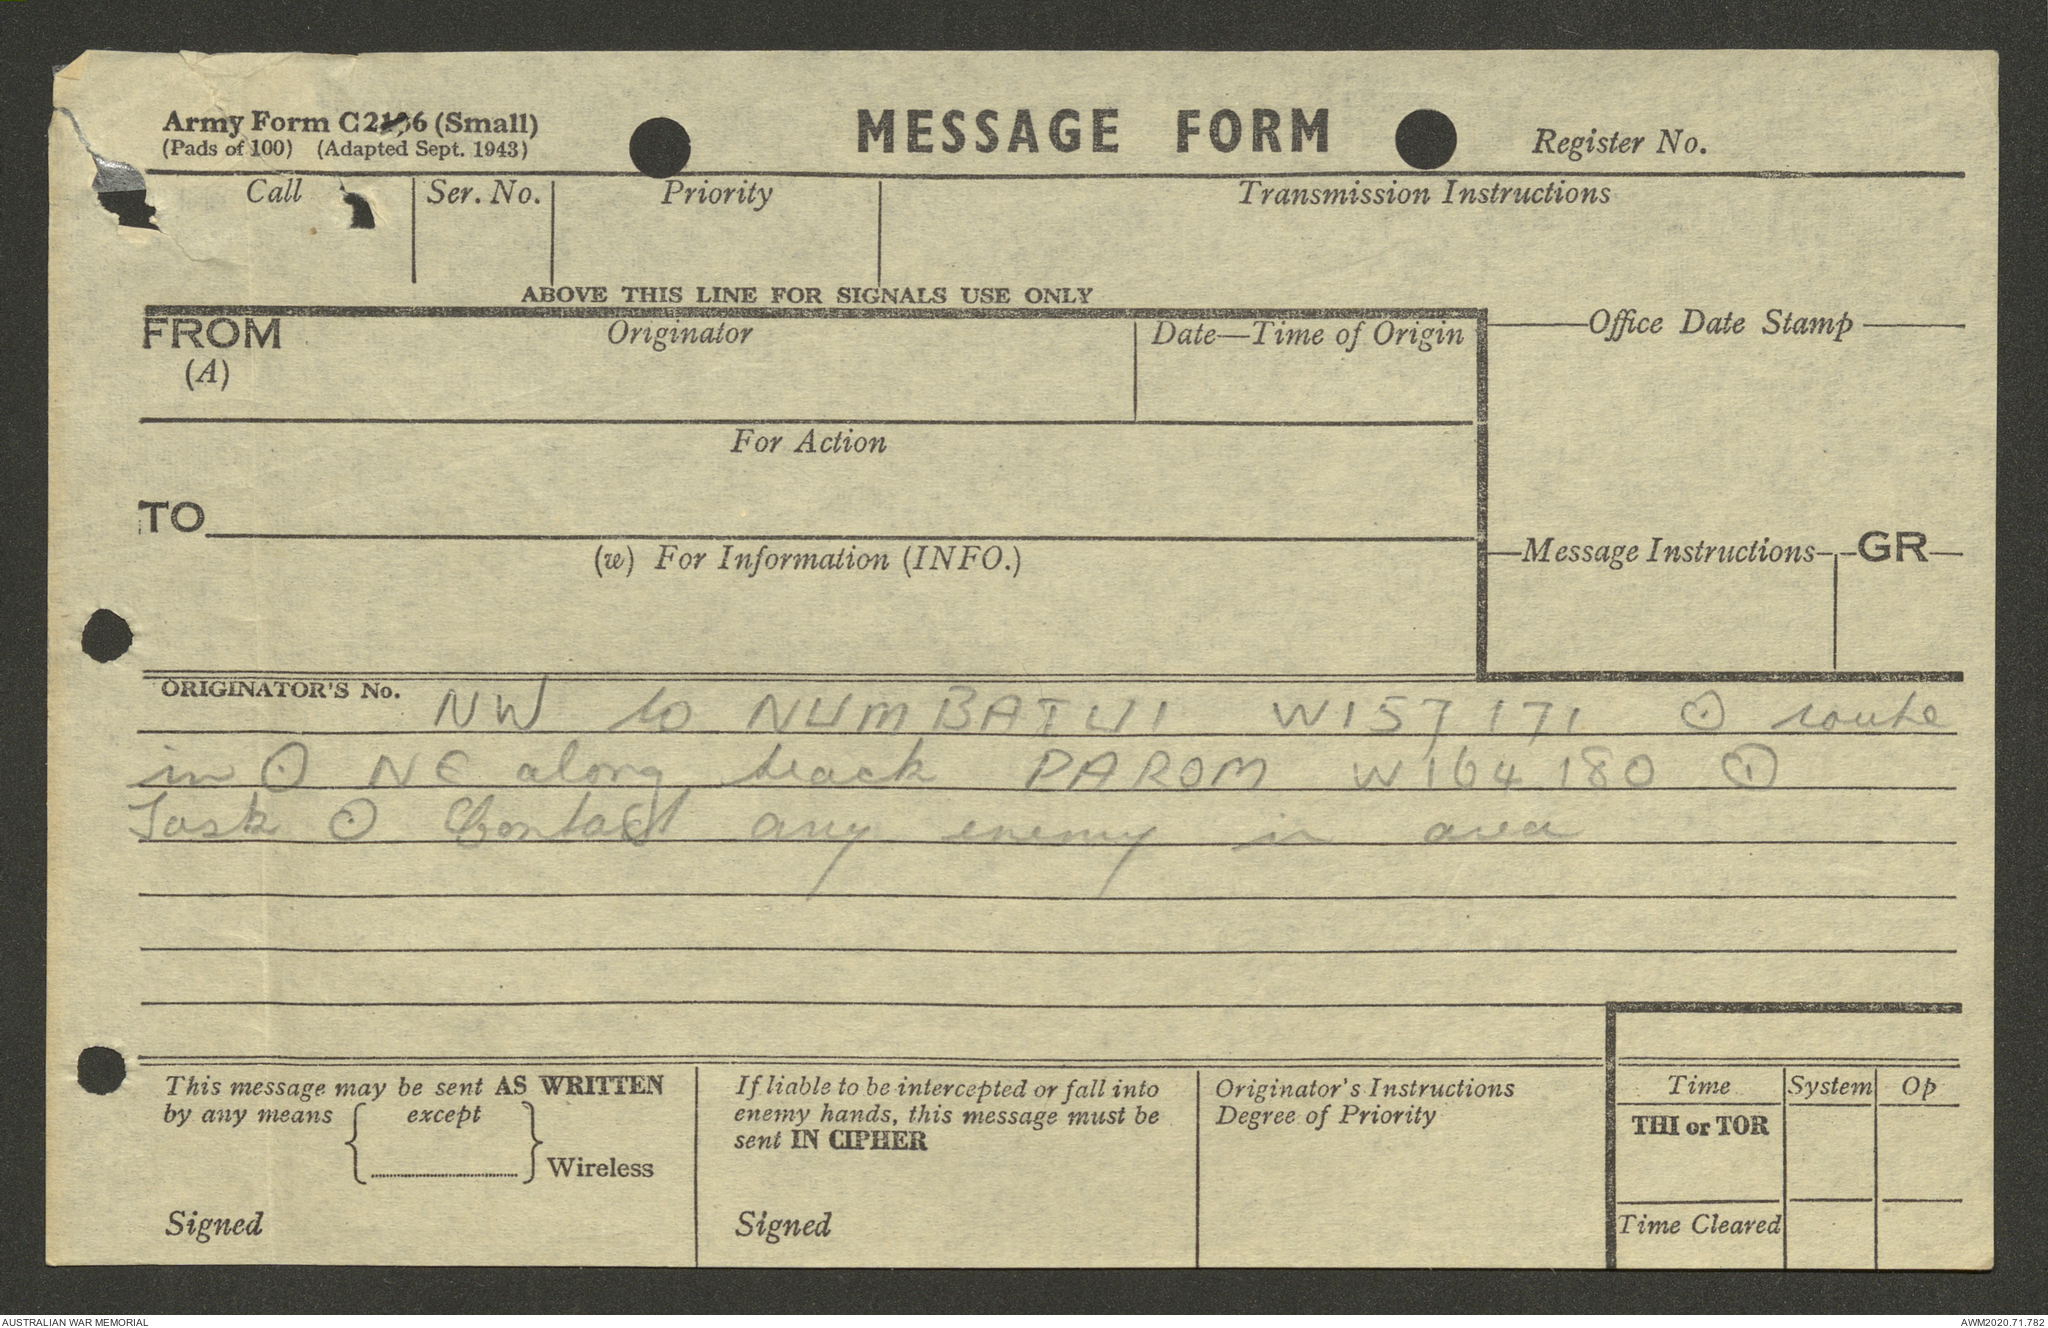 Army Form C2136 (Small)
(Pads of 100) (Adapted Sept. 1943)
MESSAGE FORM
Register No.
Call
Ser. No.
Priority
Transmission Instructions
ABOVE THIS LINE FOR SIGNALS USE ONLY
FROM
(A)
Originator
Date—Time of Origin
Office Date Stamp
For Action
TO
(w) For Information (INFO.)
Message Instructions
GR
ORIGINATOR'S No.
NW to NUMBATUI W157171 ⊙ route
in ⊙ NE along track PAROM W164180 ⊙
Task ⊙ Contact any enemy in area
This message may be sent AS WRITTEN
by any means { except
} Wireless
Signed
If liable to be intercepted or fall into
enemy hands, this message must be
sent IN CIPHER
Signed
Originator's Instructions
Degree of Priority
Time
System
Op
THI or TOR
Time Cleared
AUSTRALIAN WAR MEMORIAL
AWM2020.71.782